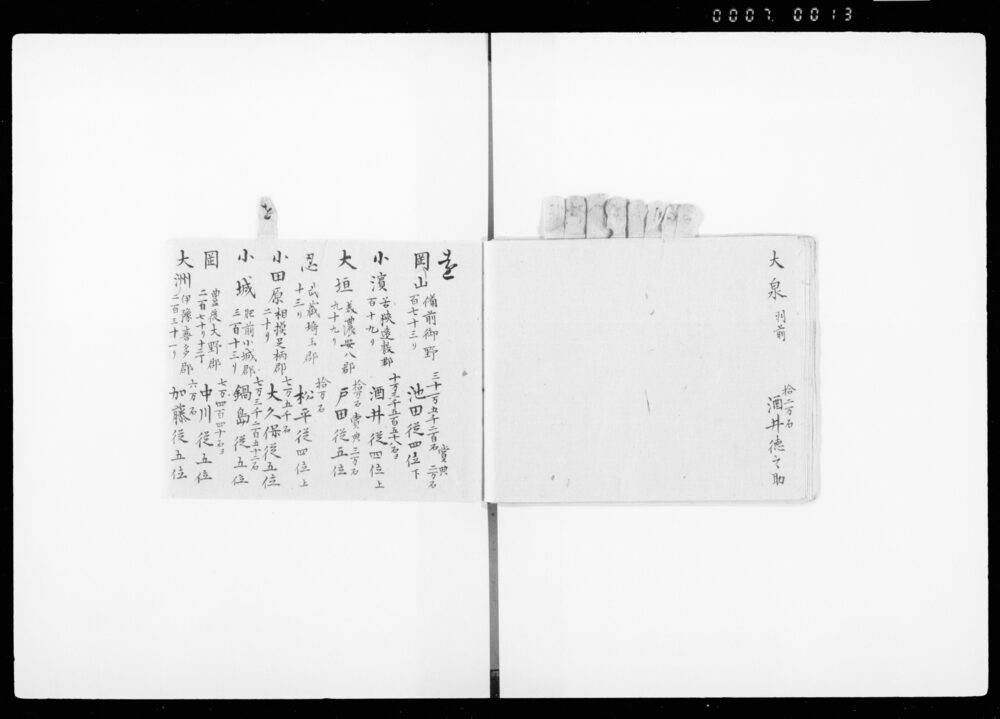 0007 0013
大泉 羽前
拾二万石
酒井徳之助
を
岡山 備前御野
百七十三り
三十一万五千二百石 賞典二万石
池田従四位下
小濱 若狭遠敷郡
百十九り
十万三千五百五十八石ヨ
酒井従四位上
大垣 美濃安八郡
九十九り
拾万石 賞典三万石
戸田従五位
忍 武蔵埼玉郡
十三り
拾万石
松平従四位上
小田原 相摸足柄郡
二十り
七万五千石
大久保従五位
小城 肥前小城郡
三百十三り
七万三千二百五十二石
鍋島従五位
岡 豊後大野郡
二百七十り十二丁
七万四百四十石ヨ
中川従五位
大洲 伊豫喜多郡
二百三十一り
六万石
加藤従五位
を